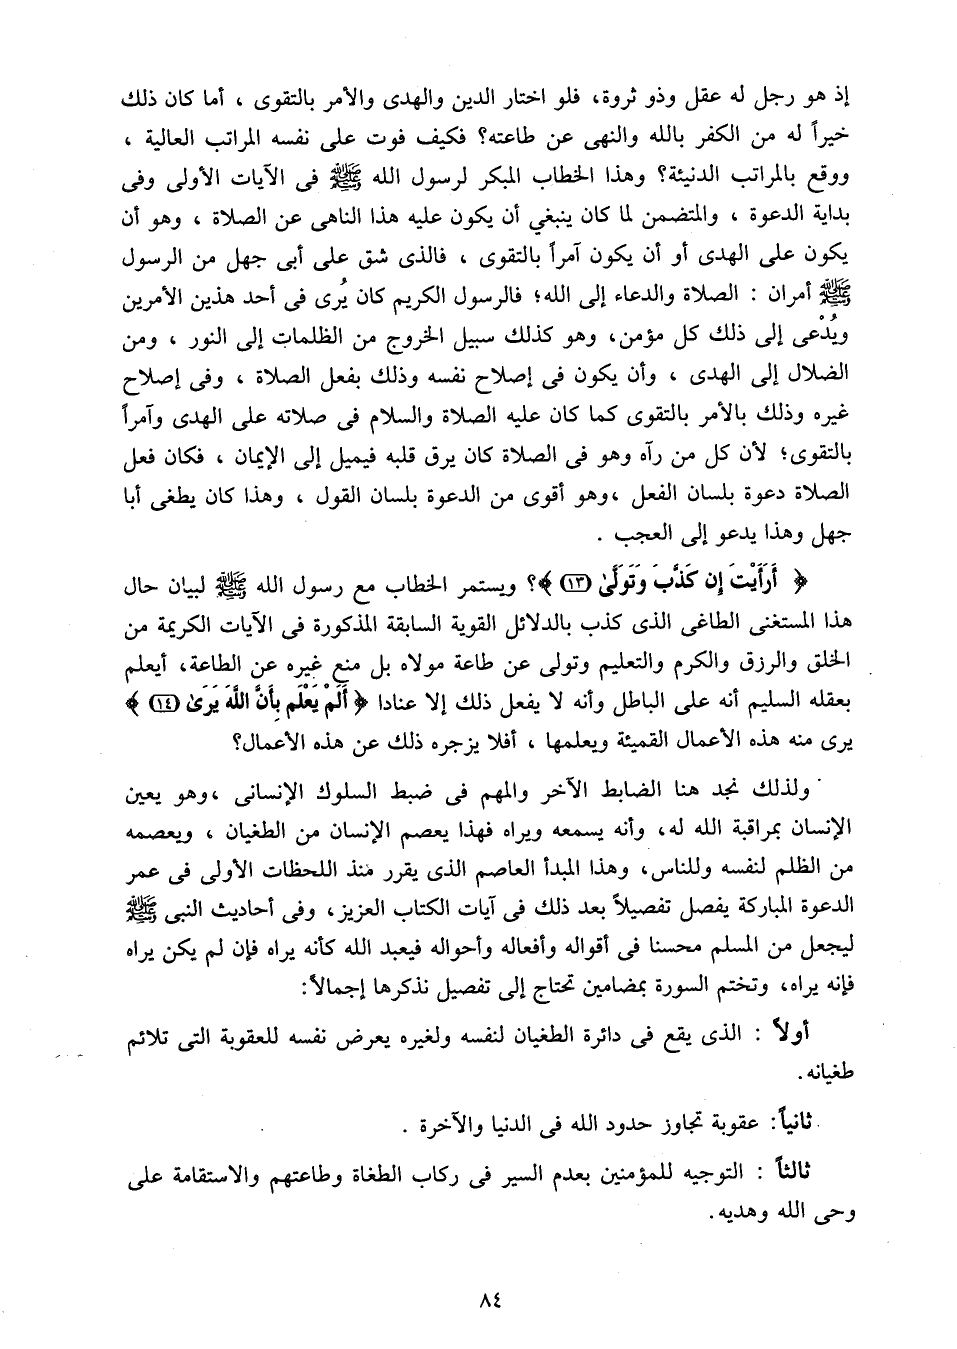 إذ هو رجل له عقل وذو ثروة، فلو اختار الدين والهدى والأمر بالتقوى ، أما كان ذلك
خيراً له من الكفر بالله والنهى عن طاعته؟ فكيف فوت على نفسه المراتب العالية ،
ووقع بالمراتب الدنيئة؟ وهذا الخطاب المبكر لرسول الله ﷺ فى الآيات الأولى وفى
بداية الدعوة ، والمتضمن لما كان ينبغي أن يكون عليه هذا الناهى عن الصلاة ، وهو أن
يكون على الهدى أو أن يكون آمراً بالتقوى ، فالذى شق على أبى جهل من الرسول
ﷺ أمران : الصلاة والدعاء إلى الله؛ فالرسول الكريم كان يُرى فى أحد هذين الأمرين
ويُدْعى إلى ذلك كل مؤمن، وهو كذلك سبيل الخروج من الظلمات إلى النور ، ومن
الضلال إلى الهدى ، وأن يكون فى إصلاح نفسه وذلك بفعل الصلاة ، وفى إصلاح
غيره وذلك بالأمر بالتقوى كما كان عليه الصلاة والسلام فى صلاته على الهدى وآمراً
بالتقوى؛ لأن كل من رآه وهو فى الصلاة كان يرق قلبه فيميل إلى الإيمان ، فكان فعل
الصلاة دعوة بلسان الفعل ،وهو أقوى من الدعوة بلسان القول ، وهذا كان يطغى أبا
جهل وهذا يدعو إلى العجب .
﴿ أَرَأَيْتَ إِن كَذَّبَ وَتَوَلَّىٰ (١٣) ﴾؟ ويستمر الخطاب مع رسول الله ﷺ لبيان حال
هذا المستغنى الطاغى الذى كذب بالدلائل القوية السابقة المذكورة فى الآيات الكريمة من
الخلق والرزق والكرم والتعليم وتولى عن طاعة مولاه بل منع غيره عن الطاعة، أيعلم
بعقله السليم أنه على الباطل وأنه لا يفعل ذلك إلا عنادا ﴿ أَلَمْ يَعْلَم بِأَنَّ اللَّهَ يَرَىٰ (١٤) ﴾
يرى منه هذه الأعمال القميئة ويعلمها ، أفلا يزجره ذلك عن هذه الأعمال؟
ولذلك نجد هنا الضابط الآخر والمهم فى ضبط السلوك الإنسانى ،وهو يعين
الإنسان بمراقبة الله له، وأنه يسمعه ويراه فهذا يعصم الإنسان من الطغيان ، ويعصمه
من الظلم لنفسه وللناس، وهذا المبدأ العاصم الذى يقرر منذ اللحظات الأولى فى عمر
الدعوة المباركة يفصل تفصيلاً بعد ذلك فى آيات الكتاب العزيز، وفى أحاديث النبى ﷺ
ليجعل من المسلم محسنا فى أقواله وأفعاله وأحواله فيعبد الله كأنه يراه فإن لم يكن يراه
فإنه يراه، وتختم السورة بمضامين تحتاج إلى تفصيل نذكرها إجمالاً:
أولاً : الذى يقع فى دائرة الطغيان لنفسه ولغيره يعرض نفسه للعقوبة التى تلائم
طغيانه.
ثانياً: عقوبة تجاوز حدود الله فى الدنيا والآخرة .
ثالثاً : التوجيه للمؤمنين بعدم السير فى ركاب الطغاة وطاعتهم والاستقامة على
وحى الله وهديه.
٨٤